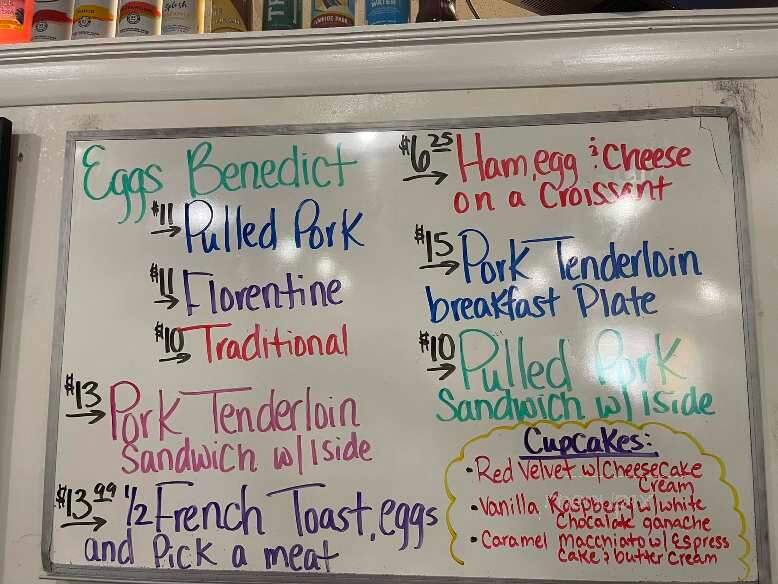 Eggs Benedict
$11 → Pulled Pork
$11 → Florentine
$10 → Traditional
$13 → Pork Tenderloin
Sandwich w/ 1 side
$13.99 → 1/2 French Toast, eggs
and Pick a meat
$6.25 → Ham, egg & Cheese
on a Croissant
$15 → Pork Tenderloin
breakfast Plate
$10 → Pulled Pork
Sandwich w/ 1 side
Cupcakes:
• Red Velvet w/ Cheesecake
Cream
• Vanilla Raspberry w/ white
Chocolate ganache
• Caramel macchiato w/ Espress
cake & butter cream